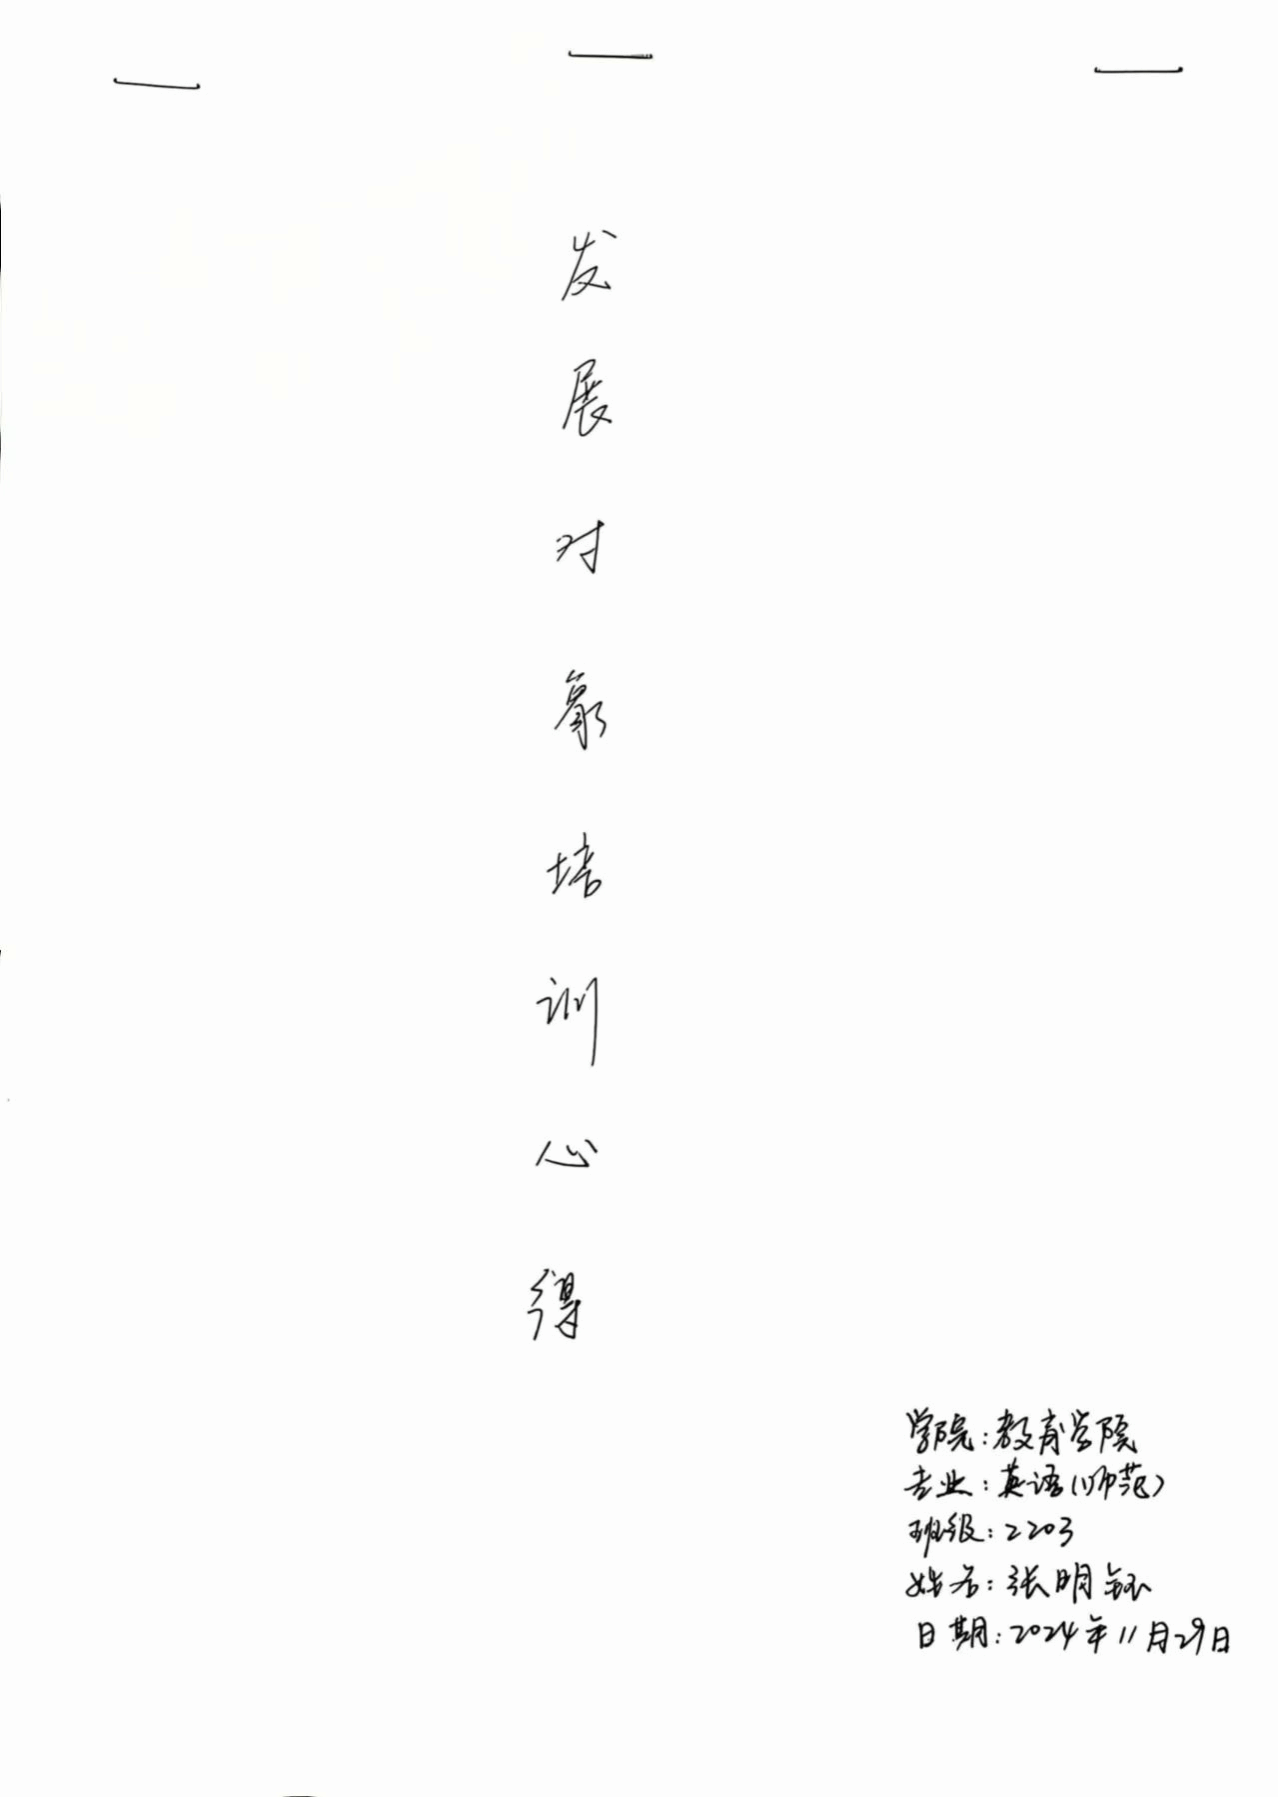 发展对象培训心得
学院：教育学院
专业：英语（师范）
班级：2203
姓名：张明钰
日期：2024年11月29日